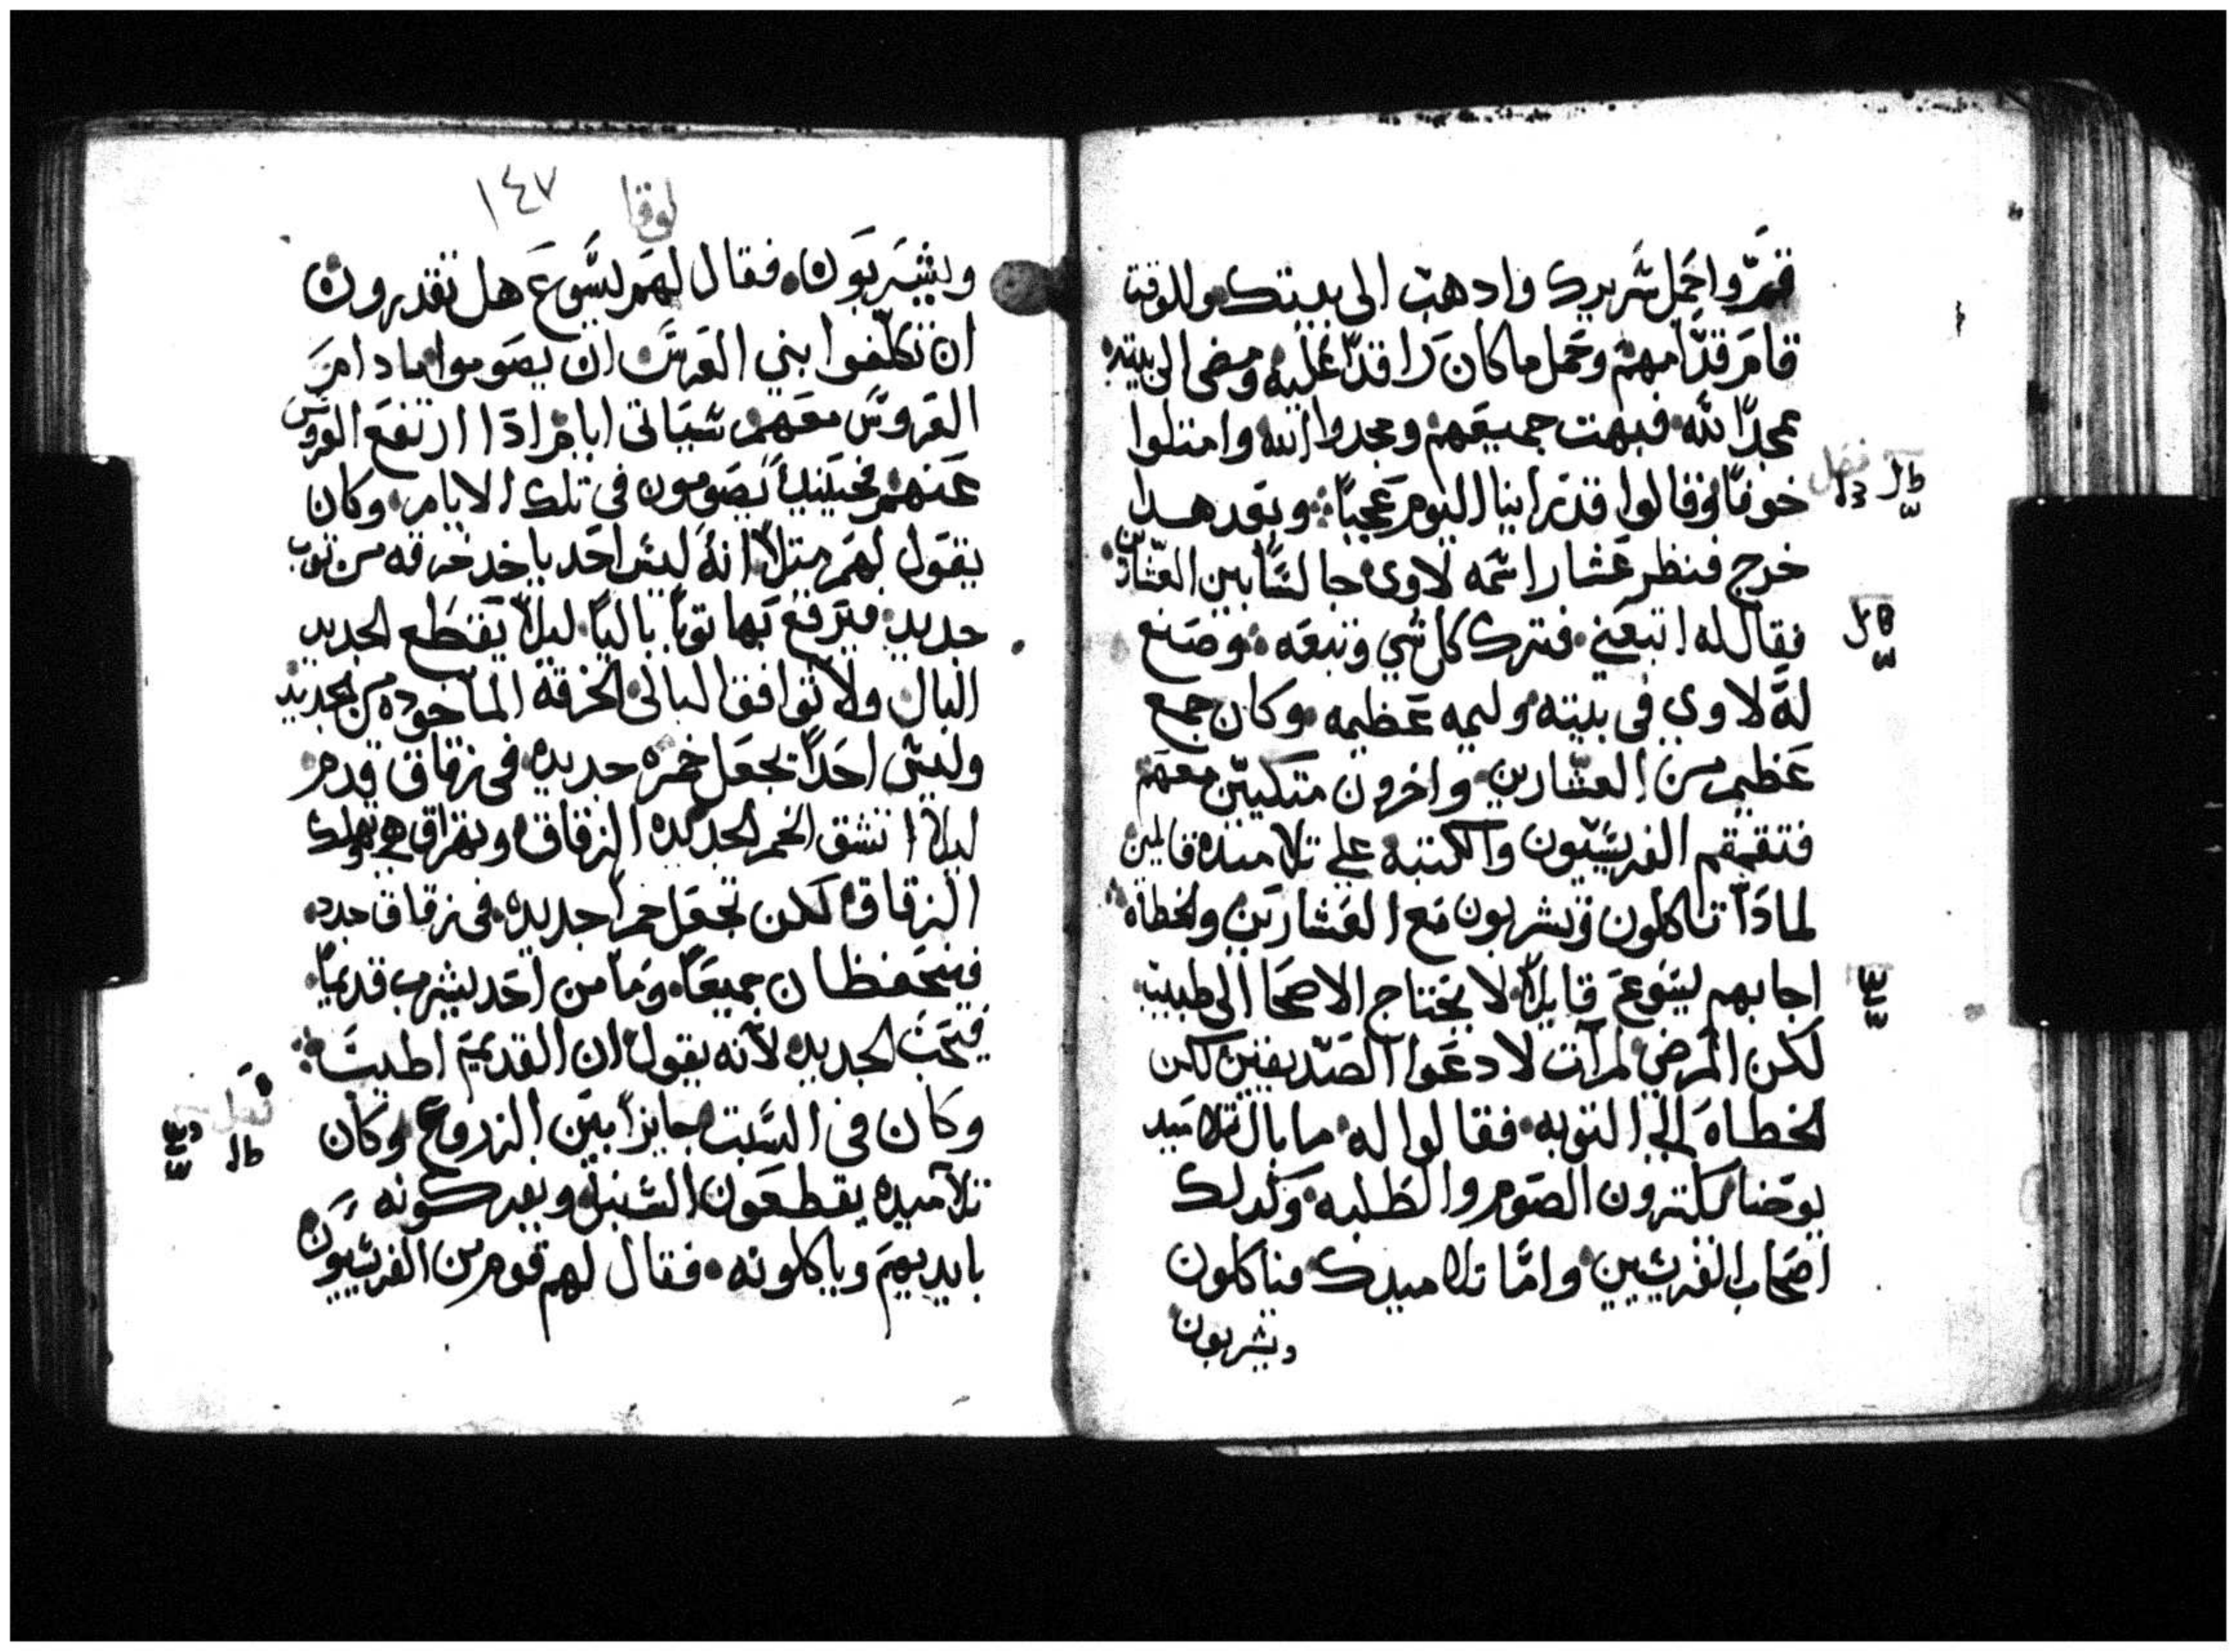 قمّ واحمل سَريرك وادهب الى بيتك وللوقت
قامَر قدّامهم وحمل ما كانَ راقدًا عليه ومضى الى بيته
ممجدًا لله فبهت جميعهم ومجدوا الله وامتلوا
خوفًا وقالوا قد راينا اليوم عجبًا وبعد هدا
خرج فنظر عَشار اسَمه لاوى جالسًا بين العشارين
فقال له اتبعني فترك كل شي وتبعه وصنع
لهَ لاوي في بيته وليمه عَظيمه وكان جمع
عَظيم من العشارين واخرون متكيين معهم
فتقمقم الفريسيون والكتبه على تلاميذه قايلين
لمادَا تاكلون وتشربون مَع العَشارين والخطاه
اجابهم يسَوعَ قايلاً لا يحتاج الاصحَا الى طبيب
لكن المرضي لم آت لادعَوا الصَديقين لكن
الخطاهَ الى التوبه فقالوا له ما بال تلاميد
يوحَنا يكترون الصَوم والطلبه وكدلك
اصَحاب الفريسَيين وامَّا تلاميدك فياكلون
ويشربون
لوقا ١٤٧
ويشَربَون فقال لهَم يسَّوعَ هل تقدرون
ان تكلفوا بني العَرسَ ان يصَوموا ما دامَ
العَروسَ معَهم سَتياتى ايام ادَا ارتفعَ العروس
عَنهم فحينيدٍ يصَومون في تلك الايام وكان
يقَول لهَم متلاً انهُ ليسَ احَد ياخد خرقه من توب
جديد فيَرقعَ بَها توبًا باليًا ليلاً يَقطَع الجديد
البال ولا توافق البالى الخرقه الماخوده من الجديد
وليسَ احَدًا يجعَل خمره جديده في زقاق قدم
ليلا تنشق الخمر الجديده الزقاق وتهراق هي وتهلك
الزقاق لكن تجعَل خمراً جديده في زقاق جدد
فيتحَفظان جميعًا ومَا من احَد يشرب قديمًا
فيحَب الجديده لانه يقول ان القديم اطيب
وكان في السَبت جايزًا بيَن الزروعَ وكان
تلاميده يقطعَون السَنبل ويفركونه
بايديهمَ وياكلونه فقال لهم قوم من الفريسَيون